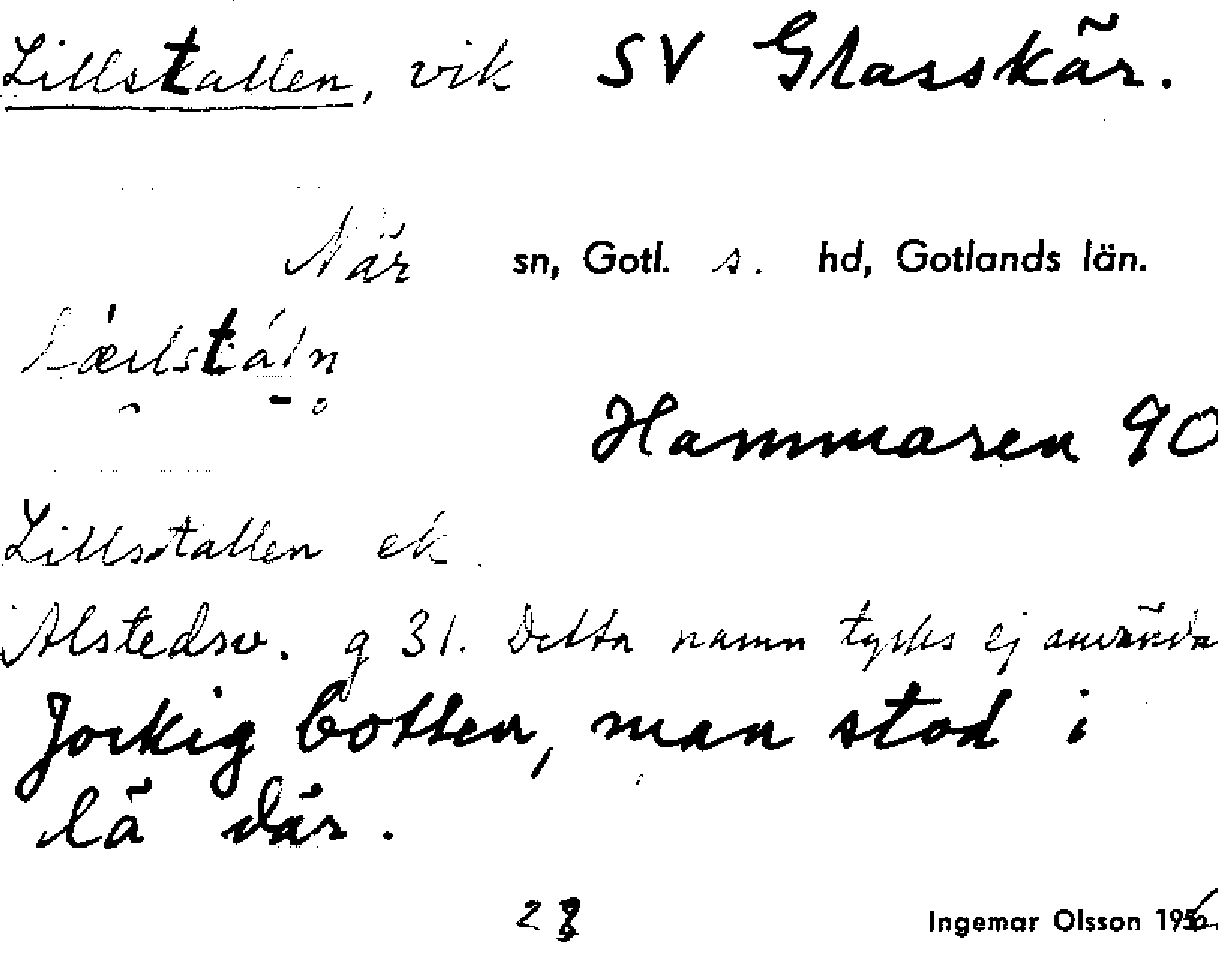 Lillstallen, vik SV Glasskär.
När sn, Gotl. s. hd, Gotlands län.
Hammaren 90
Lillstallen ek.
Alstedsv. g 31. Detta namn tycks ej använda
botten, man stod i
lä där.
Ingemar Olsson